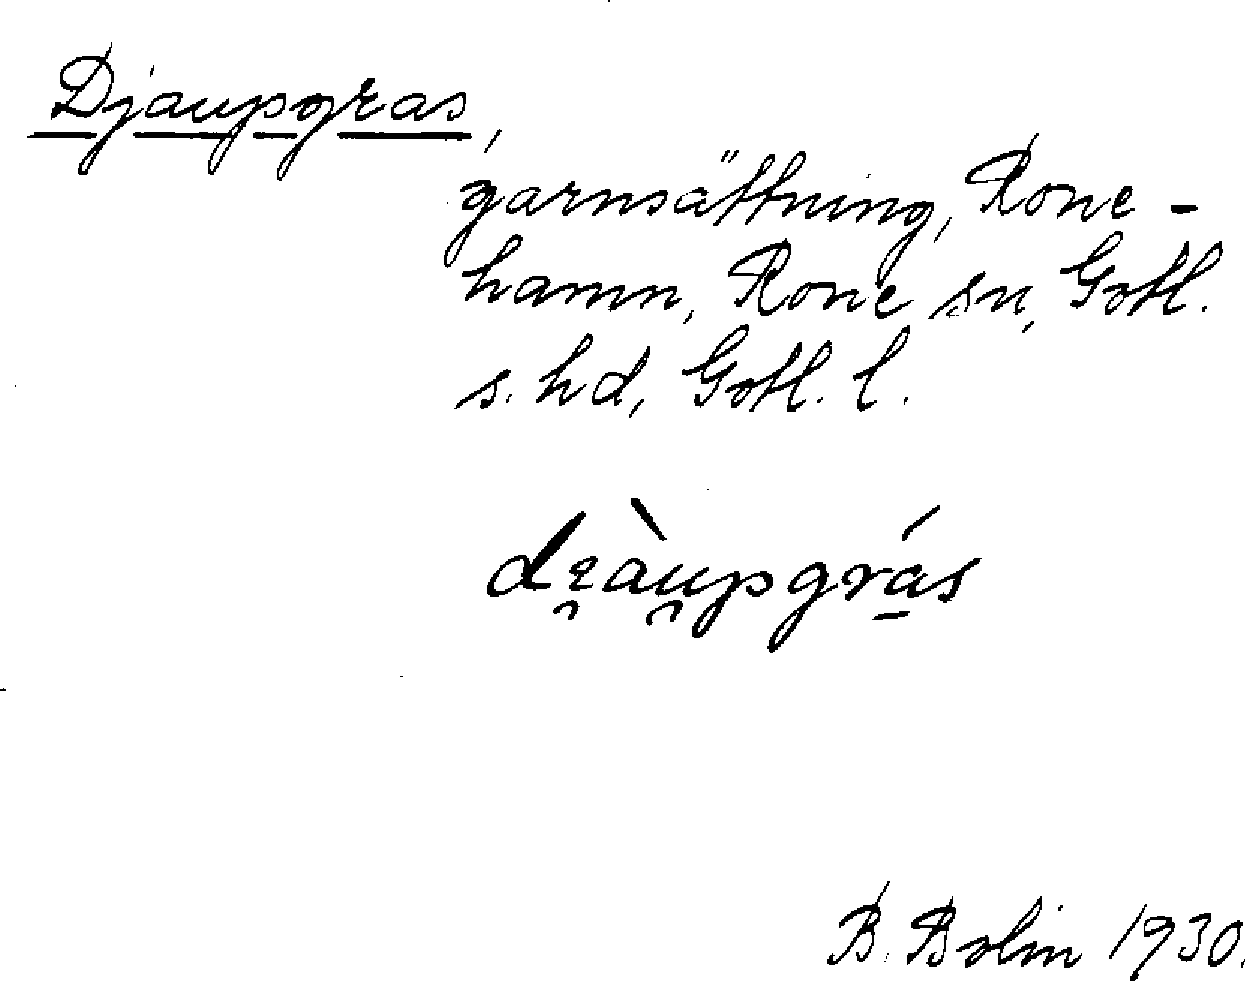 Djaupgras,
garnsättning, Rone-
hamn, Rone sn, Gotl.
s. hd, Gotl. l.
B. Bolin 1930.